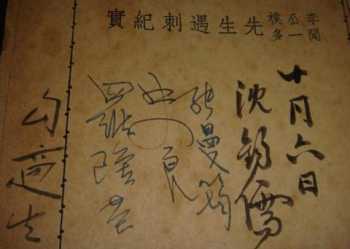 李公樸
聞一多
先生遇刺紀實
十月六日
沈鈞儒
張曼筠
史良
羅隆基
勾適生